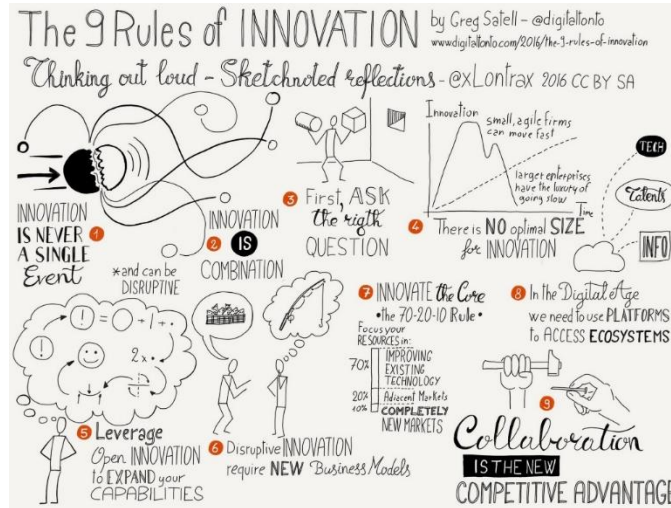 The 9 Rules of INNOVATION
by Greg Satell - @digitaltonto
www.digitaltonto.com/2016/the-9-rules-of-innovation
Thinking out loud - Sketchnoted reflections - @xLontrax 2016 CC BY SA
1
INNOVATION
IS NEVER
A SINGLE
Event
*and can be
DISRUPTIVE
2
INNOVATION
IS
COMBINATION
3
First, ASK
the rigth
QUESTION
Innovation
small, agile firms
can move fast
larger enterprises
have the luxury of
going slow
Time
4
There is NO optimal SIZE
for INNOVATION
TECH
Talents
INFO
! = O + 1 + ..
! 2x •
5 Leverage
Open INNOVATION
to EXPAND your
CAPABILITIES
6 Disruptive INNOVATION
require NEW Business Models
7 INNOVATE the Core
• the 70-20-10 Rule •
Focus your
RESOURCES in:
70% IMPROVING
EXISTING
TECHNOLOGY
20% Adjacent Markets
10% COMPLETELY
NEW MARKETS
8 In the Digital Age
we need to use PLATFORMS
to ACCESS ECOSYSTEMS
9
Collaboration
IS THE NEW
COMPETITIVE ADVANTAGE